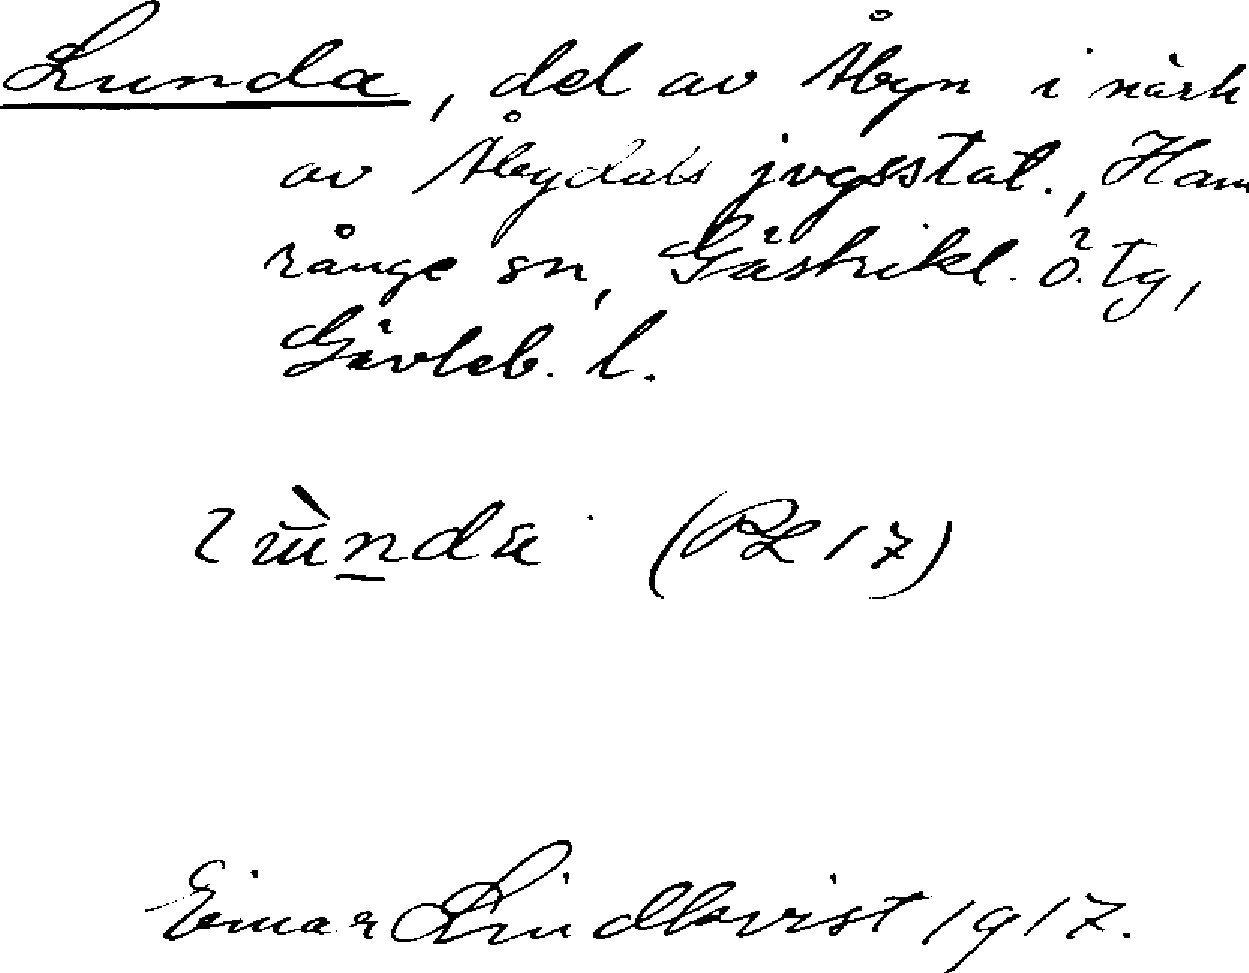 Lunda, del av Åbyn i närh
av Åbydals jvgsstat., Ham
rånge sn, Gästrikl. ö. tg,
Gävleb. l.
(PL 17)
Einar Lindkvist 1917.